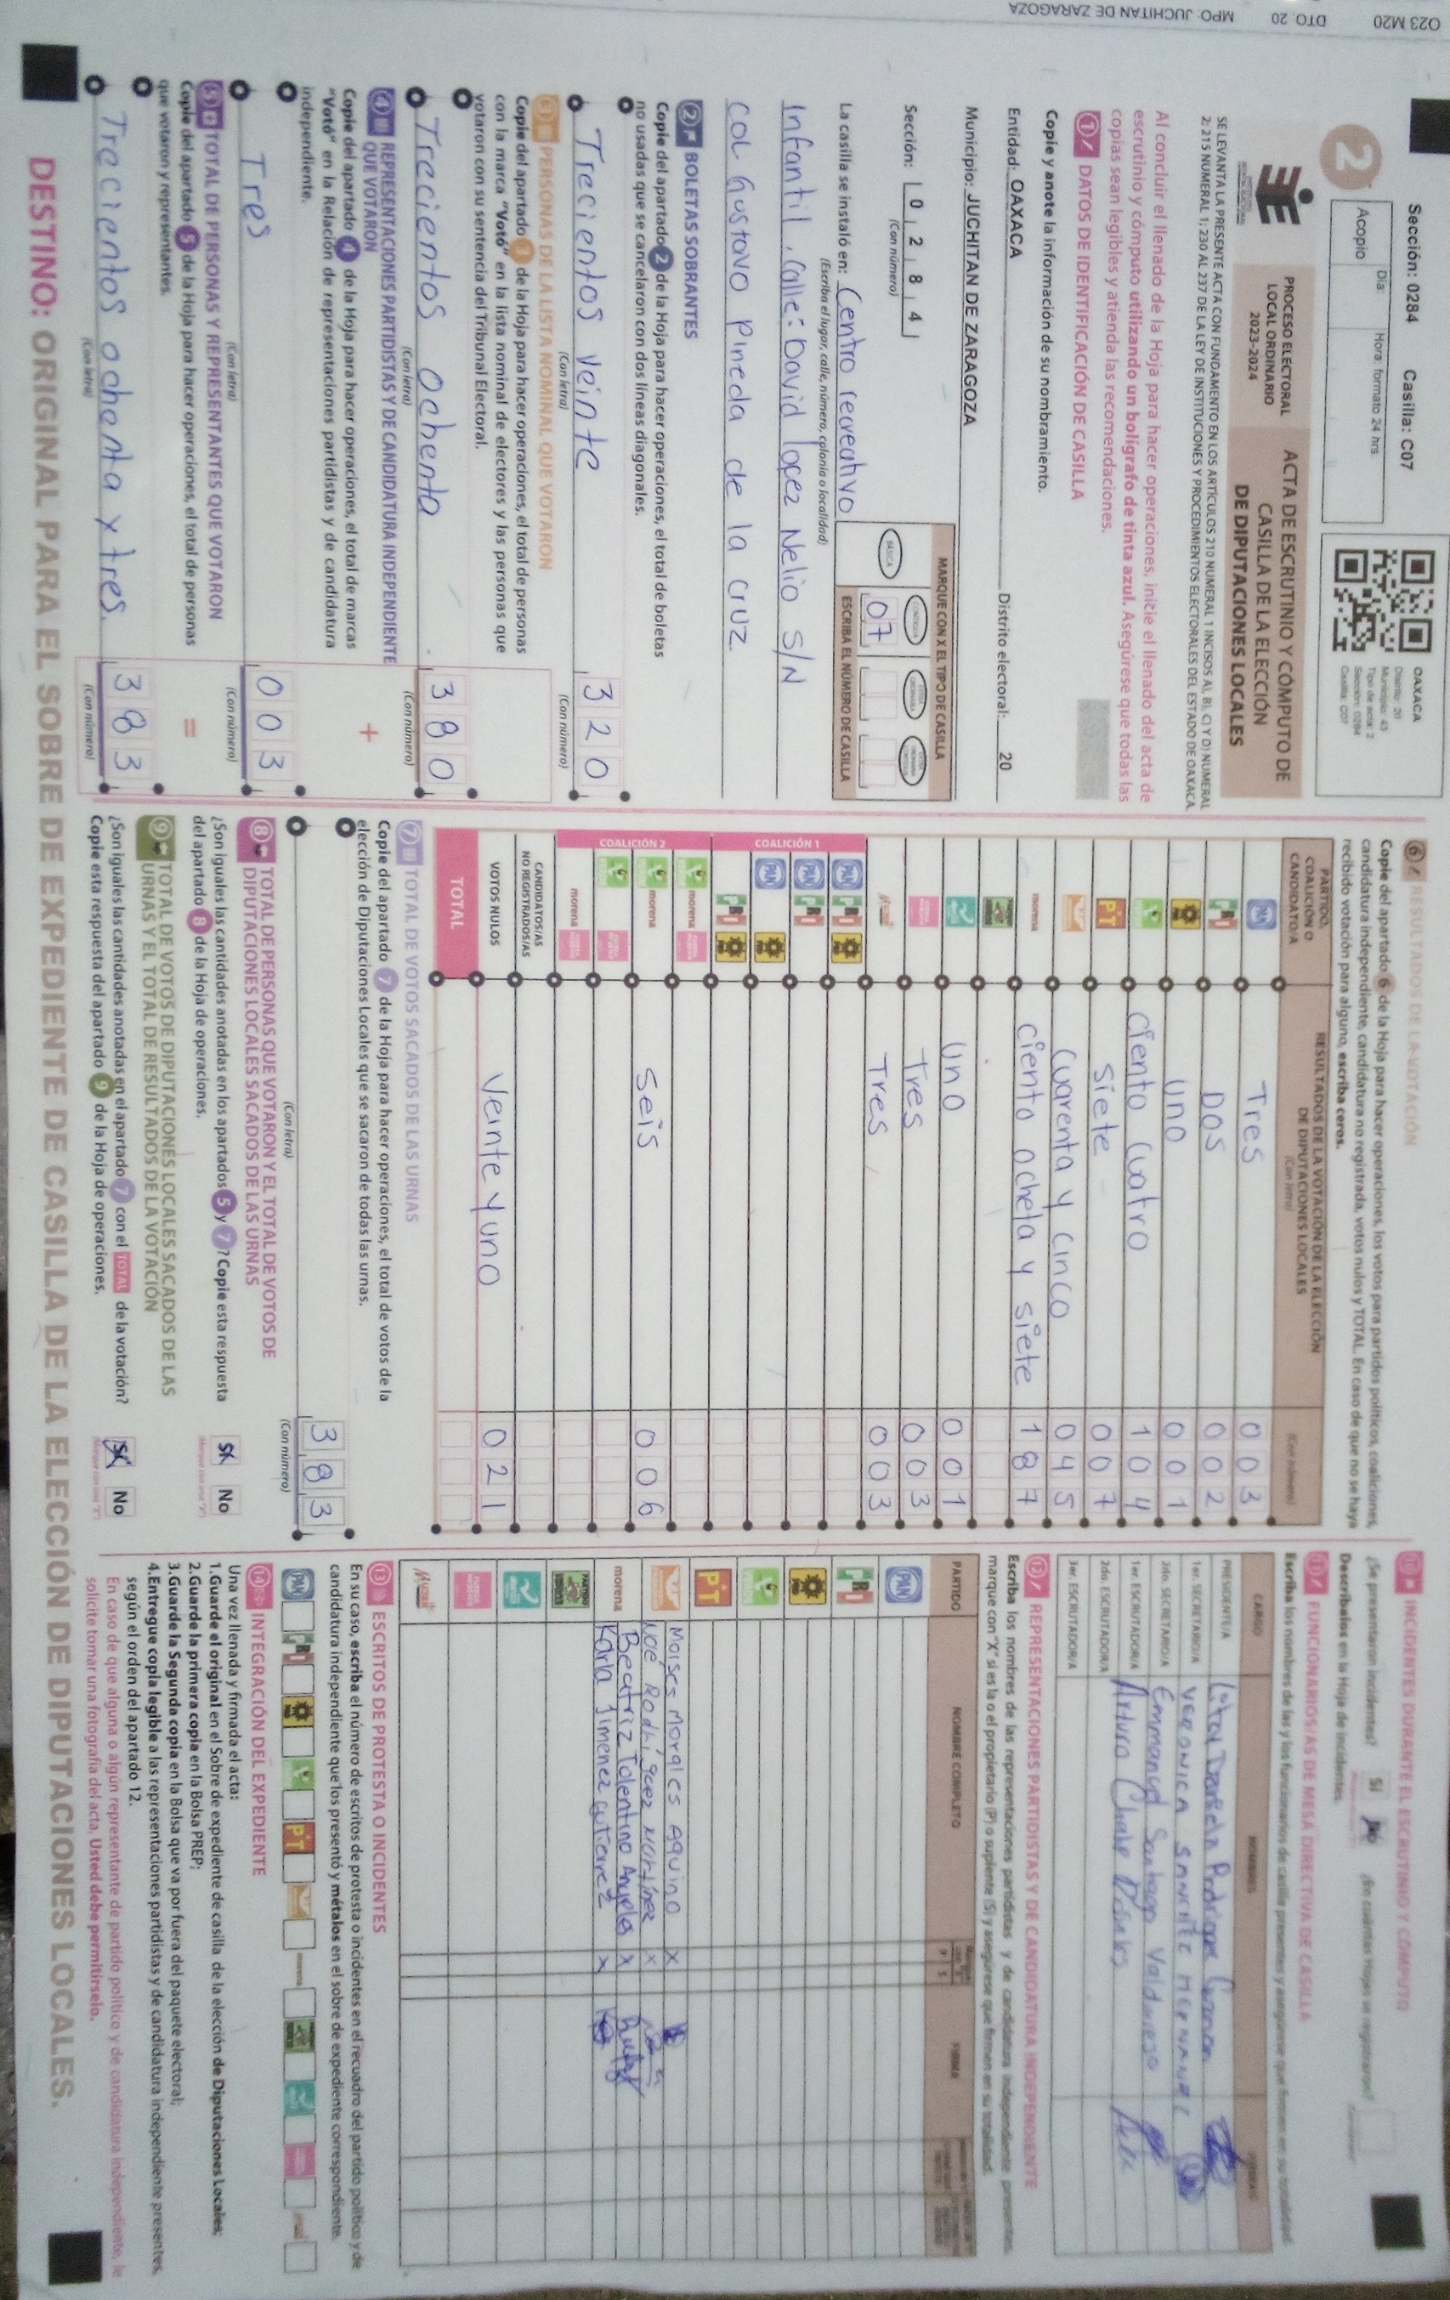 O23 M20 DTO. 20 MPO. JUCHITAN DE ZARAGOZA
Sección: 0284 Casilla: C07
Día: Hora: formato 24 hrs
Acopio
2
OAXACA
Distrito: 20
Municipio: 43
Tipo de acta: 2
Sección: 0284
Casilla: C07
PROCESO ELECTORAL
LOCAL ORDINARIO
2023-2024
ACTA DE ESCRUTINIO Y CÓMPUTO DE
CASILLA DE LA ELECCIÓN
DE DIPUTACIONES LOCALES
SE LEVANTA LA PRESENTE ACTA CON FUNDAMENTO EN LOS ARTÍCULOS 210 NUMERAL 1 INCISOS A), B), C) Y D) NUMERAL
2; 215 NUMERAL 1; 230 AL 237 DE LA LEY DE INSTITUCIONES Y PROCEDIMIENTOS ELECTORALES DEL ESTADO DE OAXACA.
Al concluir el llenado de la Hoja para hacer operaciones, inicie el llenado del acta de
escrutinio y cómputo utilizando un bolígrafo de tinta azul. Asegúrese que todas las
copias sean legibles y atienda las recomendaciones.
1 DATOS DE IDENTIFICACIÓN DE CASILLA
Copie y anote la información de su nombramiento.
Entidad: OAXACA Distrito electoral: 20
Municipio: JUCHITAN DE ZARAGOZA
Sección: 0 2 8 4
(Con número)
MARQUE CON X EL TIPO DE CASILLA
BÁSICA
07
ESCRIBA EL NÚMERO DE CASILLA
La casilla se instaló en: Centro recreativo
(Escriba el lugar, calle, número, colonia o localidad)
Infantil, calle: David lopez Nelio S/N
col Gustavo Pineda de la cruz
2 BOLETAS SOBRANTES
Copie del apartado 2 de la Hoja para hacer operaciones, el total de boletas
no usadas que se cancelaron con dos líneas diagonales.
Trecientos Veinte 320
(Con letra) (Con número)
3 PERSONAS DE LA LISTA NOMINAL QUE VOTARON
Copie del apartado 3 de la Hoja para hacer operaciones, el total de personas
con la marca "Votó" en la lista nominal de electores y las personas que
votaron con su sentencia del Tribunal Electoral.
Trecientos Ochenta 380
(Con letra) (Con número)
4 REPRESENTACIONES PARTIDISTAS Y DE CANDIDATURA INDEPENDIENTE
QUE VOTARON
Copie del apartado 4 de la Hoja para hacer operaciones, el total de marcas
"Votó" en la Relación de representaciones partidistas y de candidatura
independiente.
+
Tres 003
(Con letra) (Con número)
5 TOTAL DE PERSONAS Y REPRESENTANTES QUE VOTARON
Copie del apartado 5 de la Hoja para hacer operaciones, el total de personas
que votaron y representantes.
=
Trecientos ochenta y tres. 383
(Con letra) (Con número)
6 RESULTADOS DE LA VOTACIÓN
Copie del apartado 6 de la Hoja para hacer operaciones, los votos para partidos políticos, coaliciones,
candidatura independiente, candidatura no registrada, votos nulos y TOTAL. En caso de que no se haya
recibido votación para alguno, escriba ceros.
PARTIDO,
COALICIÓN O
CANDIDATO/A
RESULTADOS DE LA VOTACIÓN DE LA ELECCIÓN
DE DIPUTACIONES LOCALES
(Con letra) (Con número)
PAN Tres 003
PRI DOS 002
uno 001
Ciento Cuatro 104
PT Siete 007
Cuarenta y cinco 045
morena ciento ocheta y siete 187
Uno 001
Tres 003
Tres 003
COALICIÓN 1
COALICIÓN 2
morena
morena Seis 006
morena
CANDIDATOS/AS
NO REGISTRADOS/AS
VOTOS NULOS Veinte y uno 021
TOTAL
7 TOTAL DE VOTOS SACADOS DE LAS URNAS
Copie del apartado 7 de la Hoja para hacer operaciones, el total de votos de la
elección de Diputaciones Locales que se sacaron de todas las urnas.
383
(Con letra) (Con número)
8 TOTAL DE PERSONAS QUE VOTARON Y EL TOTAL DE VOTOS DE
DIPUTACIONES LOCALES SACADOS DE LAS URNAS
¿Son iguales las cantidades anotadas en los apartados 5 y 7? Copie esta respuesta
del apartado 8 de la Hoja de operaciones.
Sí No
9 TOTAL DE VOTOS DE DIPUTACIONES LOCALES SACADOS DE LAS
URNAS Y EL TOTAL DE RESULTADOS DE LA VOTACIÓN
¿Son iguales las cantidades anotadas en el apartado 7 con el TOTAL de la votación?
Copie esta respuesta del apartado 9 de la Hoja de operaciones.
Sí No
10 INCIDENTES DURANTE EL ESCRUTINIO Y CÓMPUTO
¿Se presentaron incidentes? Sí No ¿En cuántas Hojas se registraron?
Descríbalos en la Hoja de incidentes.
11 FUNCIONARIOS/AS DE MESA DIRECTIVA DE CASILLA
Escriba los nombres de las y los funcionarios de casilla presentes y asegúrese que firmen en su totalidad.
CARGO NOMBRES
PRESIDENTE/A
1er. SECRETARIO/A VERONICA
2do. SECRETARIO/A Emmanuel Santiago Valdivieso
1er. ESCRUTADOR/A Arturo
2do. ESCRUTADOR/A
3er. ESCRUTADOR/A
12 REPRESENTACIONES PARTIDISTAS Y DE CANDIDATURA INDEPENDIENTE
Escriba los nombres de las representaciones partidistas y de candidatura independiente presentes,
marque con "X" si es la o el propietario (P) o suplente (S) y asegúrese que firmen en su totalidad.
PARTIDO NOMBRE COMPLETO FIRMA
PAN
PRI
PT
Moises Morales Aquino X
Noé Rodríguez Martínez X
morena Beatriz Tolentino Angeles X
Karla Jimenez Gutierrez X
13 ESCRITOS DE PROTESTA O INCIDENTES
En su caso, escriba el número de escritos de protesta o incidentes en el recuadro del partido político y de
candidatura independiente que los presentó y métalos en el sobre de expediente correspondiente.
PAN PRI PT
14 INTEGRACIÓN DEL EXPEDIENTE
Una vez llenada y firmada el acta:
1.Guarde el original en el Sobre de expediente de casilla de la elección de Diputaciones Locales;
2.Guarde la primera copia en la Bolsa PREP;
3.Guarde la Segunda copia en la Bolsa que va por fuera del paquete electoral;
4.Entregue copia legible a las representaciones partidistas y de candidatura independiente presentes,
según el orden del apartado 12.
En caso de que alguna o algún representante de partido político y de candidatura independiente, le
solicite tomar una fotografía del acta, Usted debe permitírselo.
DESTINO: ORIGINAL PARA EL SOBRE DE EXPEDIENTE DE CASILLA DE LA ELECCIÓN DE DIPUTACIONES LOCALES.